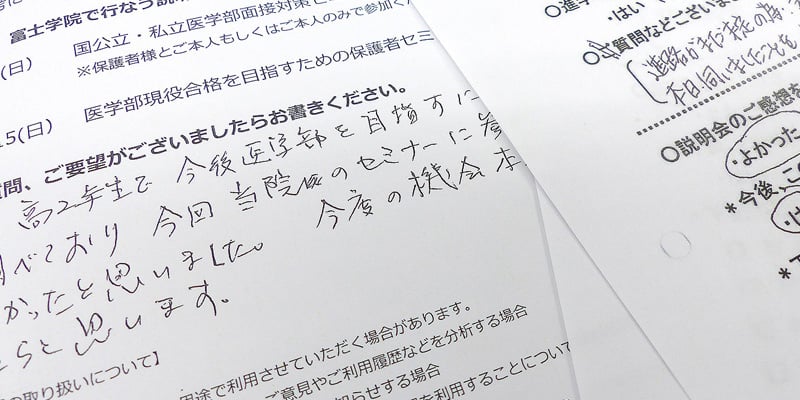 富士学院で行なう説
(日) 国公立・私立医学部面接対策セ
※保護者様とご本人もしくはご本人のみで参加く
15(日) 医学部現役合格を目指すための保護者セミ
質問、ご要望がございましたらお書きください。
高2年生で 今後医学部を目指すに
べており 今回 当院様のセミナーに参
かったと思いました。 今度の機会
らと思います。
の取り扱いについて】
用途で利用させていただく場合があります。
ご意見やご利用履歴などを分析する場合
知らせする場合
を利用することについて
○進
・はい
○質問などございま
進路が未定の為、
本日伺いましたことを
○説明会のご感想を
・よかった
*今後、こ
・は
*